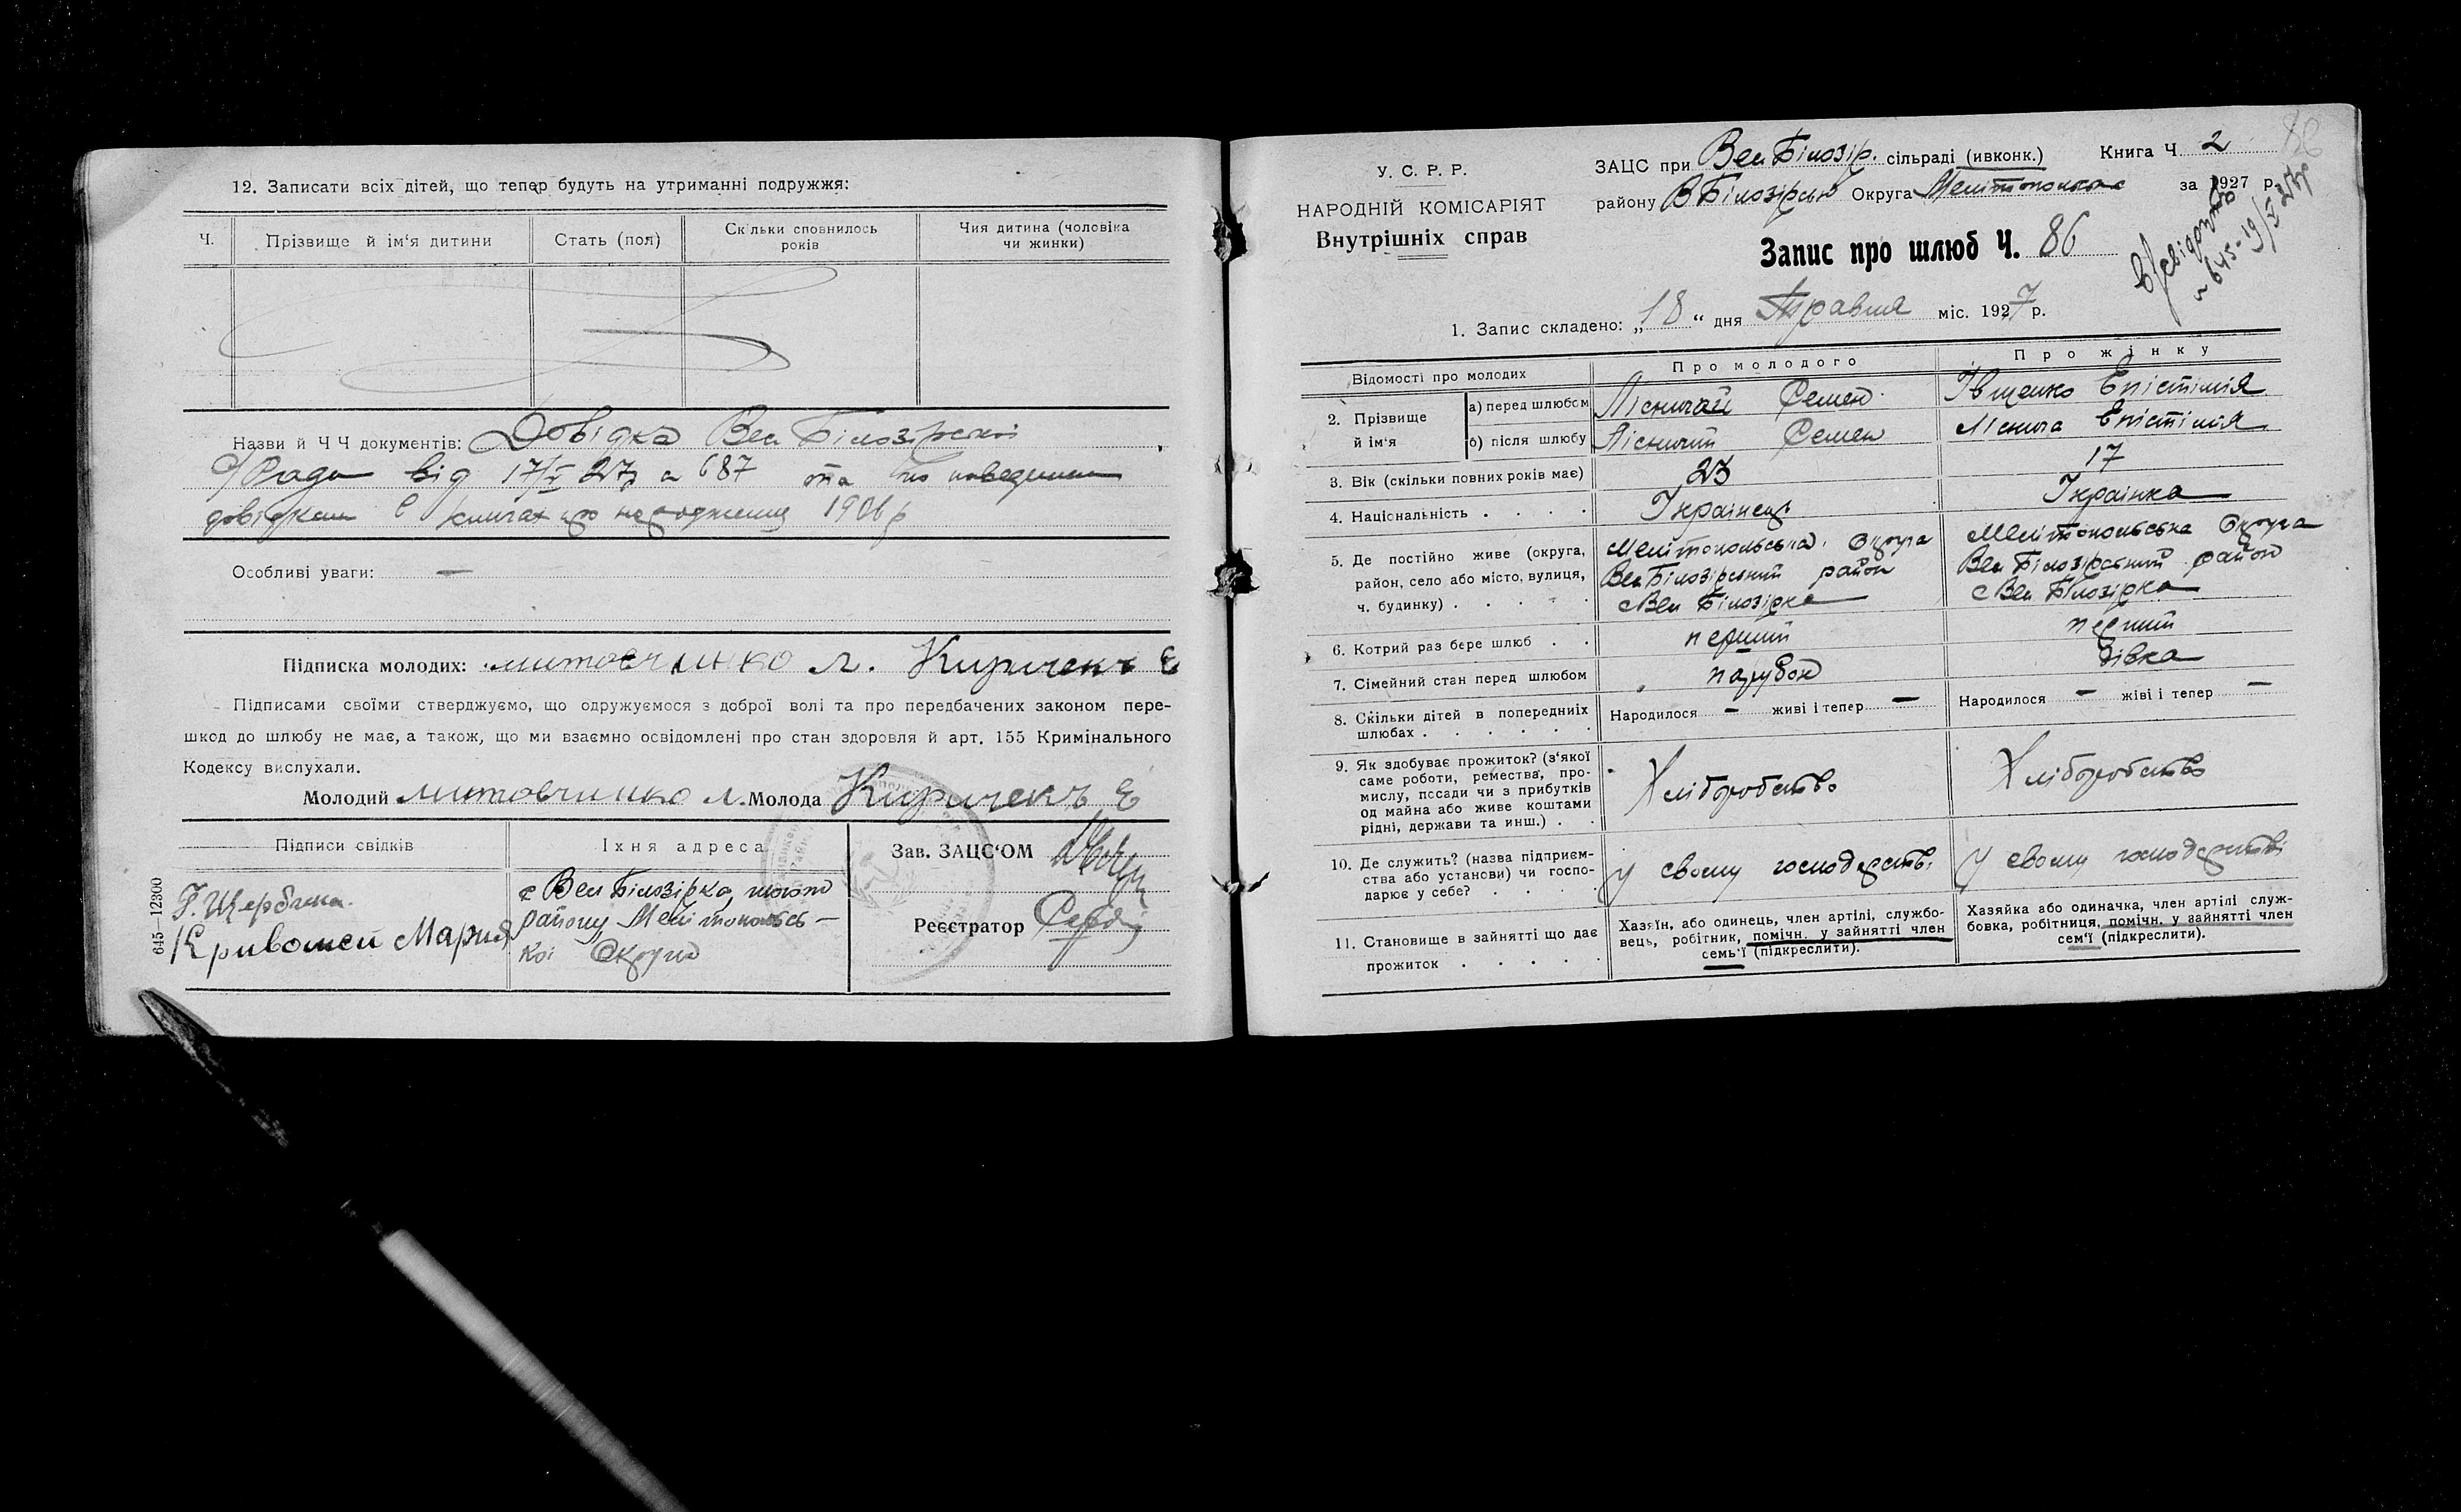 12. Записати всіх дітей, що тепер будуть на утриманні подружжя:
Ч.
Прізвище й ім'я дитини
Стать (пол)
Скільки сповнилось
років
Чия дитина (чоловіка
чи жинки)
Назви й Ч Ч документів: Довідка Вел Білозірської
с/Ради від 17/V 27р 687 та
довідкам в книгах про народження 1906 р
Особливі уваги: —
Підписка молодих: Митовчинко Л. Киричекъ Е
Підписами своїми стверджуємо, що одружуємося з доброї волі та про передбачених законом пере-
шкод до шлюбу не має, а також, що ми взаємно освідомлені про стан здоровля й арт. 155 Кримінального
Кодексу вислухали.
Молодий Митовчинко Л. Молода Киричекъ Е
Підписи свідків
Їхня адреса
Г. Щербина
Кривошей Мария
с Вел Білозірка, того
району Мелітопольсь-
кої Округи
Зав. ЗАЦС'ОМ
Реєстратор
645—12300
У. С. Р. Р.
НАРОДНІЙ КОМІСАРІЯТ
Внутрішніх справ
ЗАЦС при Вел Білозір. сільраді (ивконк.) Книга Ч. 2
району ВБілозірськ Округа Мелітопольс за 1927 р.
86
в/свідоцтво
645-19/V 27р
Запис про шлюб Ч. 86
1. Запис складено: „18“ дня Травня міс. 1927 р.
Відомості про молодих
Про молодого
Про жінку
2. Прізвище
й ім'я
а) перед шлюбом
Лісничай Семен
Івщенко Епістимія
б) після шлюбу
Лісничий Семен
Ліснича Епістимія
3. Вік (скільки повних років має)
23
17
4. Національність . . . .
Українець
Українка
5. Де постійно живе (округа,
район, село або місто, вулиця,
ч. будинку) . . . . .
Мелітопольська Округа
Вел Білозірський район
с Вел Білозірка
Мелітопольська Округа
Вел Білозірський район
с Вел Білозірка
6. Котрий раз бере шлюб . .
перший
перший
7. Сімейний стан перед шлюбом
парубок
дівка
8. Скільки дітей в попередниіх
шлюбах . . . . . .
Народилося — живі і тепер —
Народилося — жіві і тепер —
9. Як здобуває прожиток? (з'якої
саме роботи, ремества, про-
мислу, посади чи з прибутків
од майна або живе коштами
рідні, держави та инш.) . .
Хліборобство
Хліборобство
10. Де служить? (назва підприєм-
ства або установи) чи госпо-
дарює у себе? . . . .
у своєму господарстві
у своєму господарстві
11. Становище в зайнятті що дає
прожиток . . . . .
Хазяїн, або одинець, член артілі, службо-
вець, робітник, помічн. у зайнятті член
семь'ї (підкреслити).
Хазяйка або одиначка, член артілі служ-
бовка, робітниця, помічн. у зайнятті член
сем'ї (підкреслити).